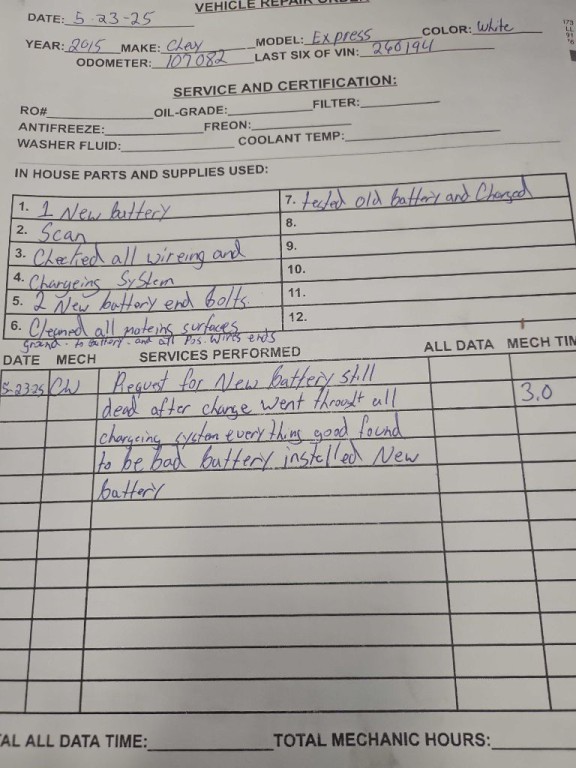 VEHICLE REPAIR ORDER
DATE: 5-23-25
YEAR: 2015 MAKE: Chevy MODEL: Express COLOR: White
ODOMETER: 107082 LAST SIX OF VIN: 260194
SERVICE AND CERTIFICATION:
RO# OIL-GRADE: FILTER:
ANTIFREEZE: FREON:
WASHER FLUID: COOLANT TEMP:
IN HOUSE PARTS AND SUPPLIES USED:
1. 1 New battery
2. Scan
3. Checked all wireing and
4. Chargeing System
5. 2 New battery end bolts.
6. Cleaned all mateing surfaces
ground - to battery - and all Pos. wires ends
7. tested old battery and Charged
8.
9.
10.
11.
12.
DATE MECH SERVICES PERFORMED ALL DATA MECH TIM
5-23-25 CW Request for New battery still
dead after charge went throught all 3.0
chargeing system every thing good found
to be bad battery installed New
battery
TAL ALL DATA TIME: TOTAL MECHANIC HOURS: